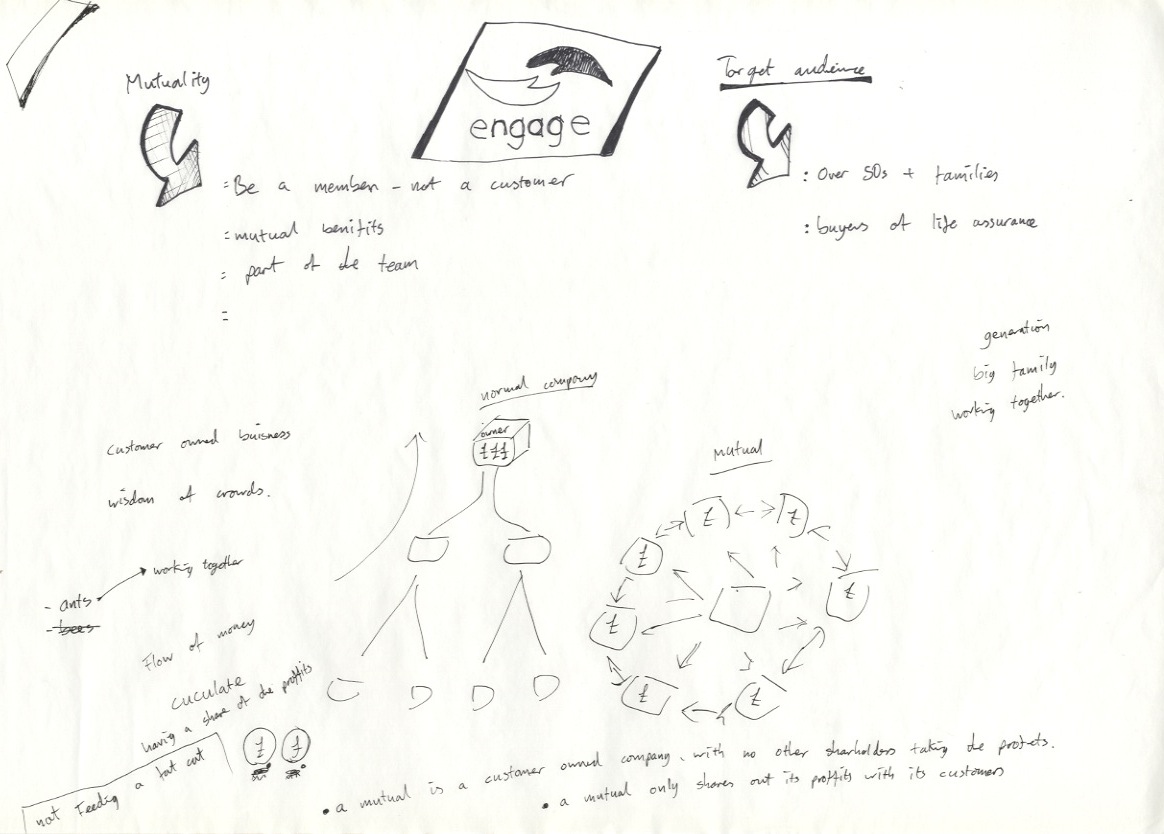 Mutuality
engage
Target audience
= Be a member - not a customer
= mutual benifits
= part of the team
=
: Over 50s + families
: buyers of life assurance
generation
big family
working together.
normal company
owner
£££
customer owned buisness
wisdom of crowds.
mutual
£
£
£
£
£
£
£
working together
- ants
- bees
Flow of money
cuculate
having a share of the proffits
not Feeding a fat cat
£ £
• a mutual is a customer owned company, with no other sharholders taking the profets.
• a mutual only shares out its proffits with its customers